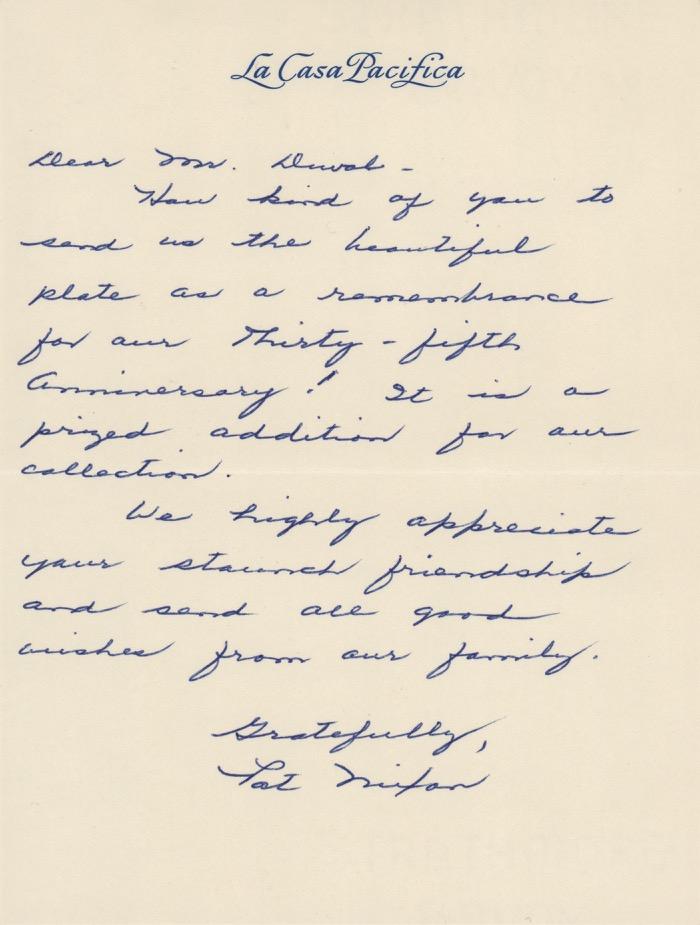 La Casa Pacifica
Dear Mr. Duval -
How kind of you to
send us the beautiful
plate as a remembrance
for our Thirty-fifth
Anniversary! It is a
prized addition for our
collection.
We highly appreciate
your staunch friendship
and send all good
wishes from our family.
Gratefully,
Pat Nixon